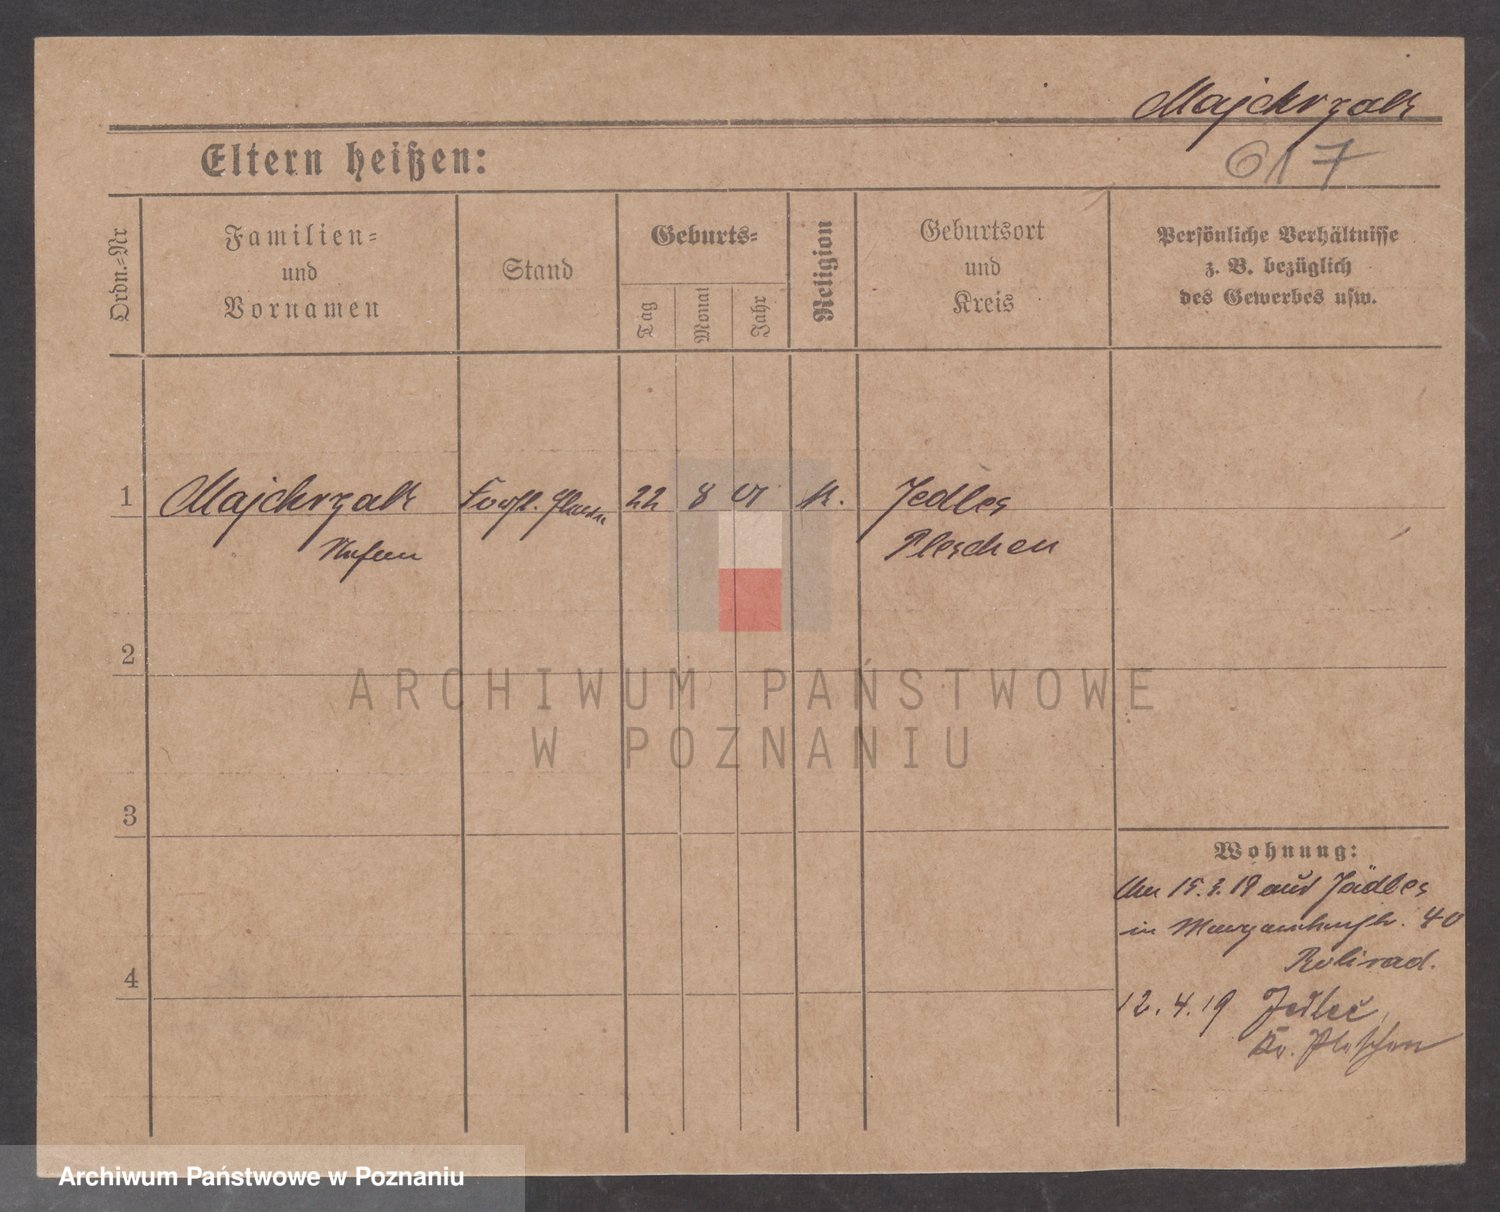 Majchrzak
Eltern heißen:
617
Ordn.-Nr
Familien-
und
Vornamen
Stand
Geburts-
Tag
Monat
Jahr
Religion
Geburtsort
und
Kreis
Persönliche Verhältnisse
z. B. bezüglich
des Gewerbes usw.
1
Majchrzak
22
8
01
K.
Jedlec
Pleschen
2
ARCHIWUM PAŃSTWOWE
W POZNANIU
3
Wohnung:
15.3.19 aus Jädlec
in 40
12.4.19 Jedlec
Kr. Pleschen
4
Archiwum Państwowe w Poznaniu